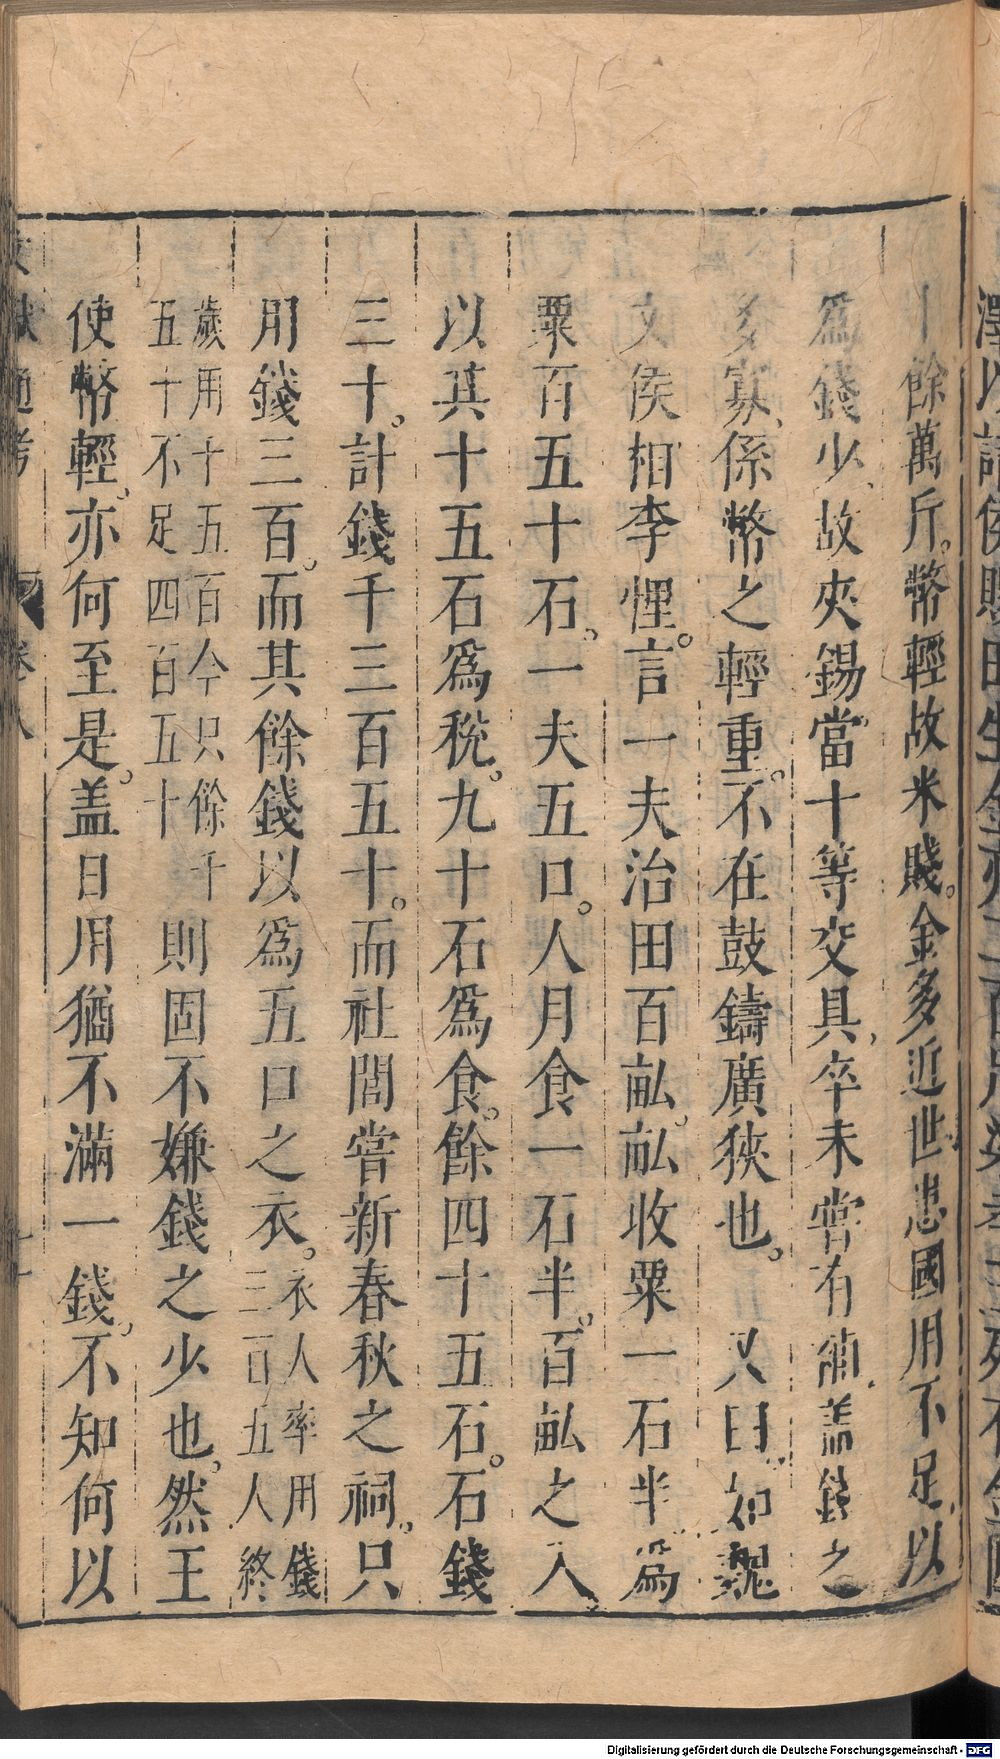 十餘萬斤。幣輕故米賤。金多近世患國用不足、以
爲錢少、故夾錫當十等交具、卒未嘗有補、盖錢之
多寡、係幣之輕重。不在鼓鑄廣狹也。 又曰、如魏
文侯相李悝。言一夫治田百畝、畝收粟一石半、爲
粟百五十石。一夫五口。人月食一石半。百畝之入
以其十五石爲稅。九十石爲食。餘四十五石。石錢
三十。計錢千三百五十。而社閭嘗新春秋之祠。只
用錢三百。而其餘錢以爲五口之衣。衣人率用錢三百五人終
歲用十五百今只餘千五十不足四百五十則固不嫌錢之少也。然王
使幣輕。亦何至是。盖日用猶不滿一錢。不知何以
文獻通考 卷八
Digitalisierung gefördert durch die Deutsche Forschungsgemeinschaft - DFG